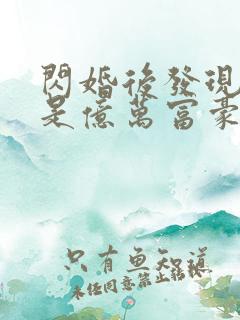 閃婚後發現
是億萬富豪
只有魚知道
未任同意禁止轉載